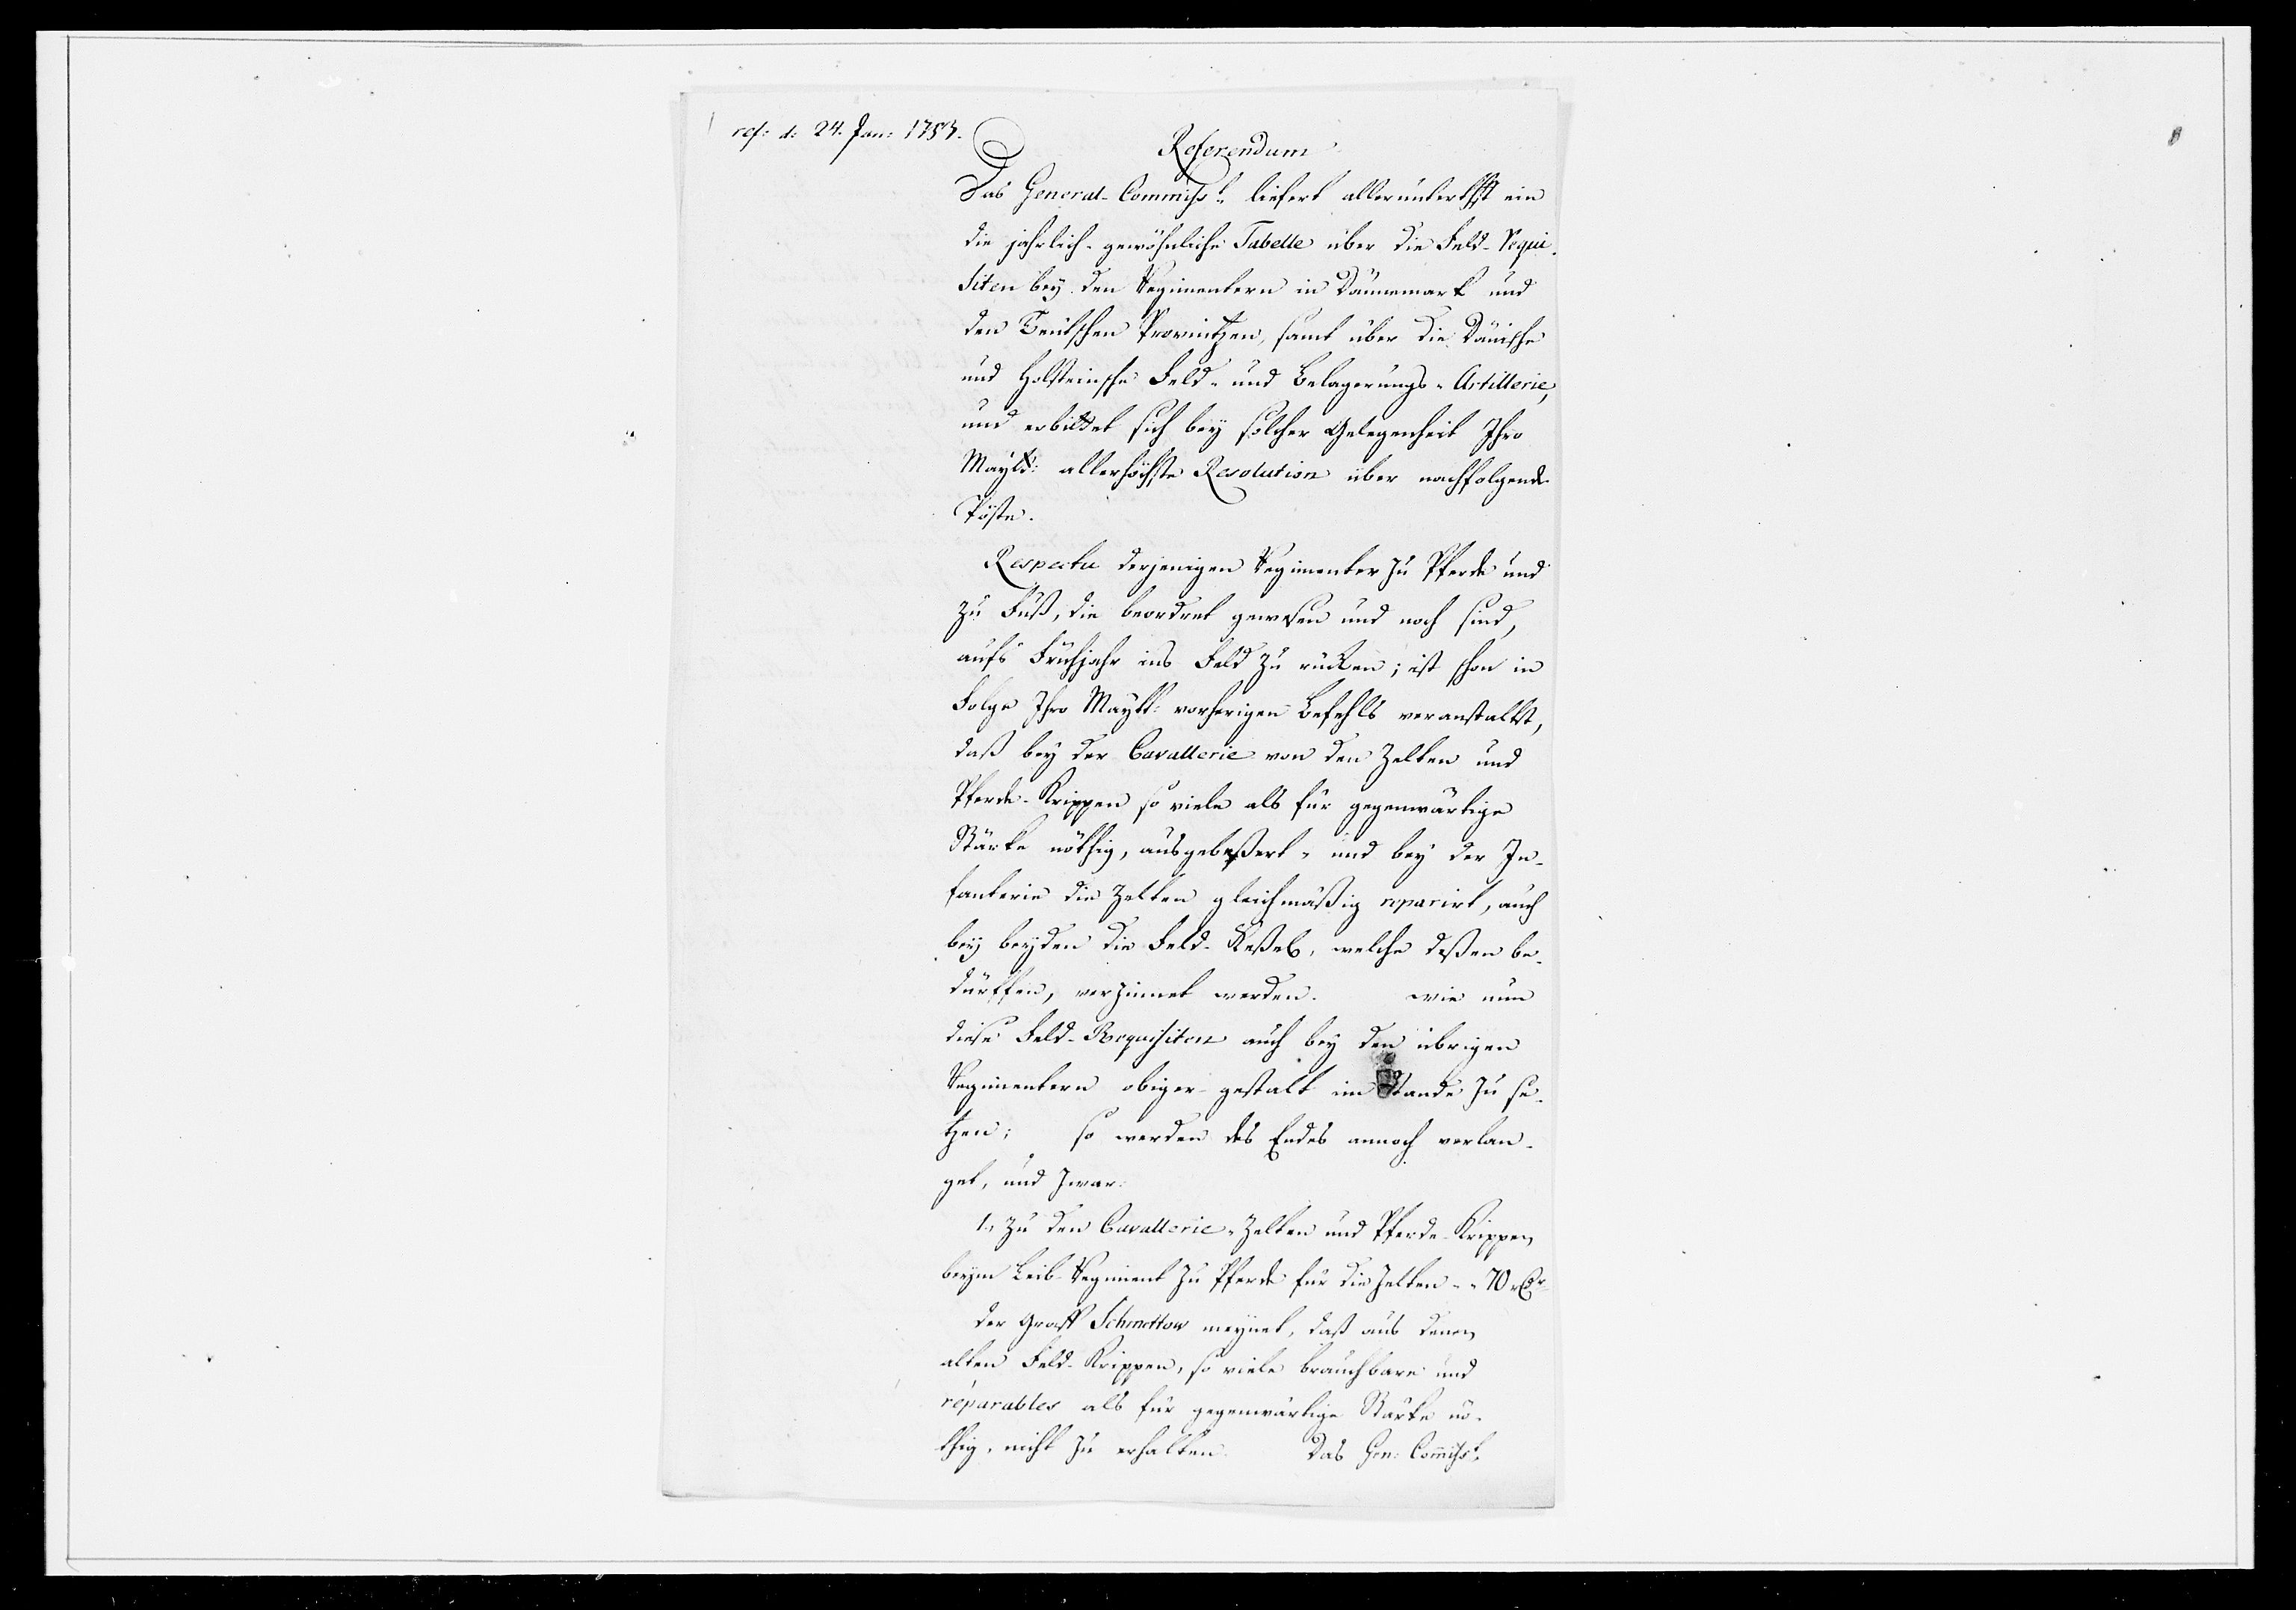 ref: d: 24. Jan: 1753.
Referendum
Das General-Commiss:t liefert allerunterthst ein
die jahrlich-gewöhnliche Tabelle über die Feld-Requi-
siten bey den Regimentern in Dännemark und
den Teutschen Provintzen, samt über die Dänische
und Holsteinsche Feld- und Belagerungs-Artillerie,
und erbittet sich bey solcher Gelegenheit Ihro
Maytt: allerhöchste Resolution über nachfolgende
Pöste.
Respectu derjenigen Regimenter zu Pferde und
zu Fuß, die beordret gewesen und noch sind,
aufs Frühjahr ins Feld zu rücken; ist schon in
Folge Ihro Maytt: vorherigen Befehls veranstaltet,
daß bey der Cavallerie von den Zelten und
Pferde-Krippen so viele als für gegenwärtige
Stärke nöthig, ausgebeßert- und bey der In-
fanterie die Zelten gleichmäßig reparirt, auch
bey beyden die Feld-Keßel, welche deßen be-
dürffen, verzinnet werden. wie nun
diese Feld-Requisiten auch bey den übrigen
Regimentern obiger-gestalt im Stande zu se-
tzen; so werden des Endes annoch verlan-
get, und zwar:
1., zu den Cavallerie-Zelten und Pferde-Krippen
beym Leib-Regiment zu Pferde für die Zelten - - 70 rCr
der Graff Schmettow meynet, daß aus denen
alten Feld-Krippen, so viele brauchbare und
réparables als für gegenwärtige Stärke nö-
thig, nicht zu erhalten. Das Gen: Commisst.